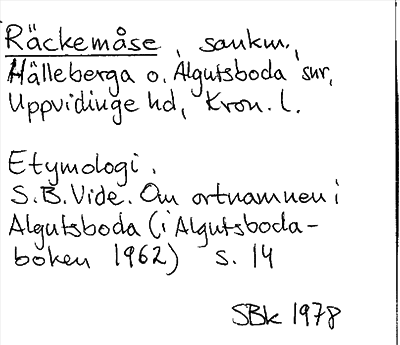 Räckemåse, sankm.,
Hälleberga o. Algutsboda snr,
Uppvidinge hd, Kron. l.
Etymologi.
S.B. Vide. Om ortnamnen i
Algutsboda (i Algutsboda-
boken 1962) s. 14
SBk 1978